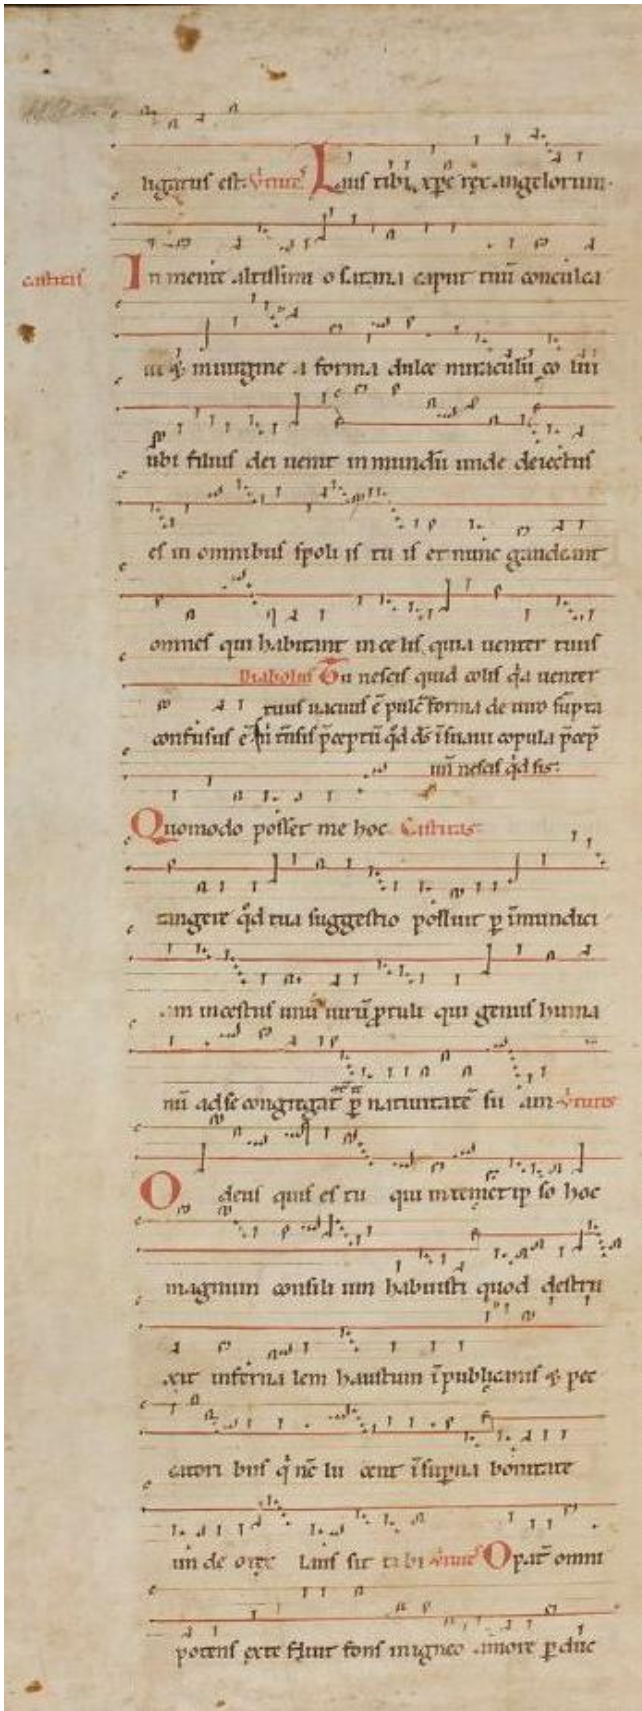 ligatus est. Virtutes Laus tibi xpe rex angelorum.
castitas In mente altissimi o satana caput tuū conculca
ui & in uirgine a forma dulce miraculū co lui
ubi filius dei uenit in mundū unde deiectus
es in omnibus spoli is tu is et nunc gaudeant
omnes qui habitant in ce lis quia uenter tuus
Diabolus Tu nescis quid colis q̄a uenter
tuus uacuus ē pulc̄ forma de uiro sūpta
confusus ē
un̄ nescis q̄d sis.
Quomodo posset me hoc Castitas
tangere q̄d tua suggestio polluit p īmundici
am incestus unū uirū ptuli qui genus huma
nū ad se congregat p natiuitatē su am Virtutes
O deus quis es tu qui in temet ip so hoc
magnum consili um habuisti quod destru
xit inferna lem haustum ī publicanis & pec
catori bus q̄ nc̄ lu cent ī supna bonitate
un de o rex Laus sit ti bi Virtutes O pat omni
potens ex te fluit fons in igneo amore p duc